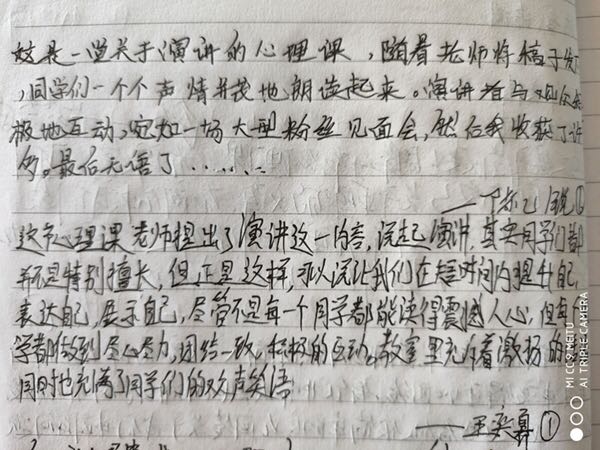 这是一堂关于演讲的心理课，随着老师将稿子发
，同学们一个个声情并茂地朗读起来。演讲者与观众积
极地互动，宛如一场大型粉丝见面会，然后我收获了许
多。最后无悟了……
这节心理课老师提出了演讲这一内容，说起演讲，其实同学们都
并不是特别擅长，但正是这样，可以说让我们在短时间内提升自己
表达自己，展示自己，尽管不是每一个同学都能读得震撼人心，但每
学都做到尽心尽力，团结一致，积极的互动。教室里充斥着激扬的
同时也充满了同学们的欢声笑语
①
MI CC9 MEITU
AI TRIPLE CAMERA